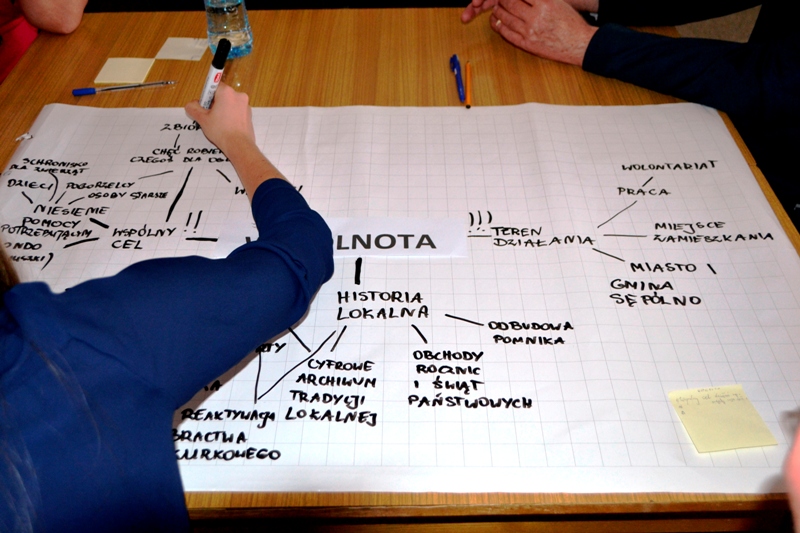 CHĘĆ
SCHRONISKO
DLA ZWIERZĄT
DZIECI
POGORZELCY
OSOBY STARSZE
NIESIENIE
POMOCY
POTRZEBUJĄCYM
WSPÓLNY
CEL
!!
LNOTA
!!!
TEREN
DZIAŁANIA
WOLONTARIAT
PRACA
MIEJSCE
ZAMIESZKANIA
MIASTO I
GMINA
SĘPÓLNO
HISTORIA
LOKALNA
ODBUDOWA
POMNIKA
OBCHODY
ROCZNIC
I ŚWIĄT
PAŃSTWOWYCH
CYFROWE
ARCHIWUM
TRADYCJI
LOKALNEJ
REAKTYWACJA
BRACTWA
KURKOWEGO